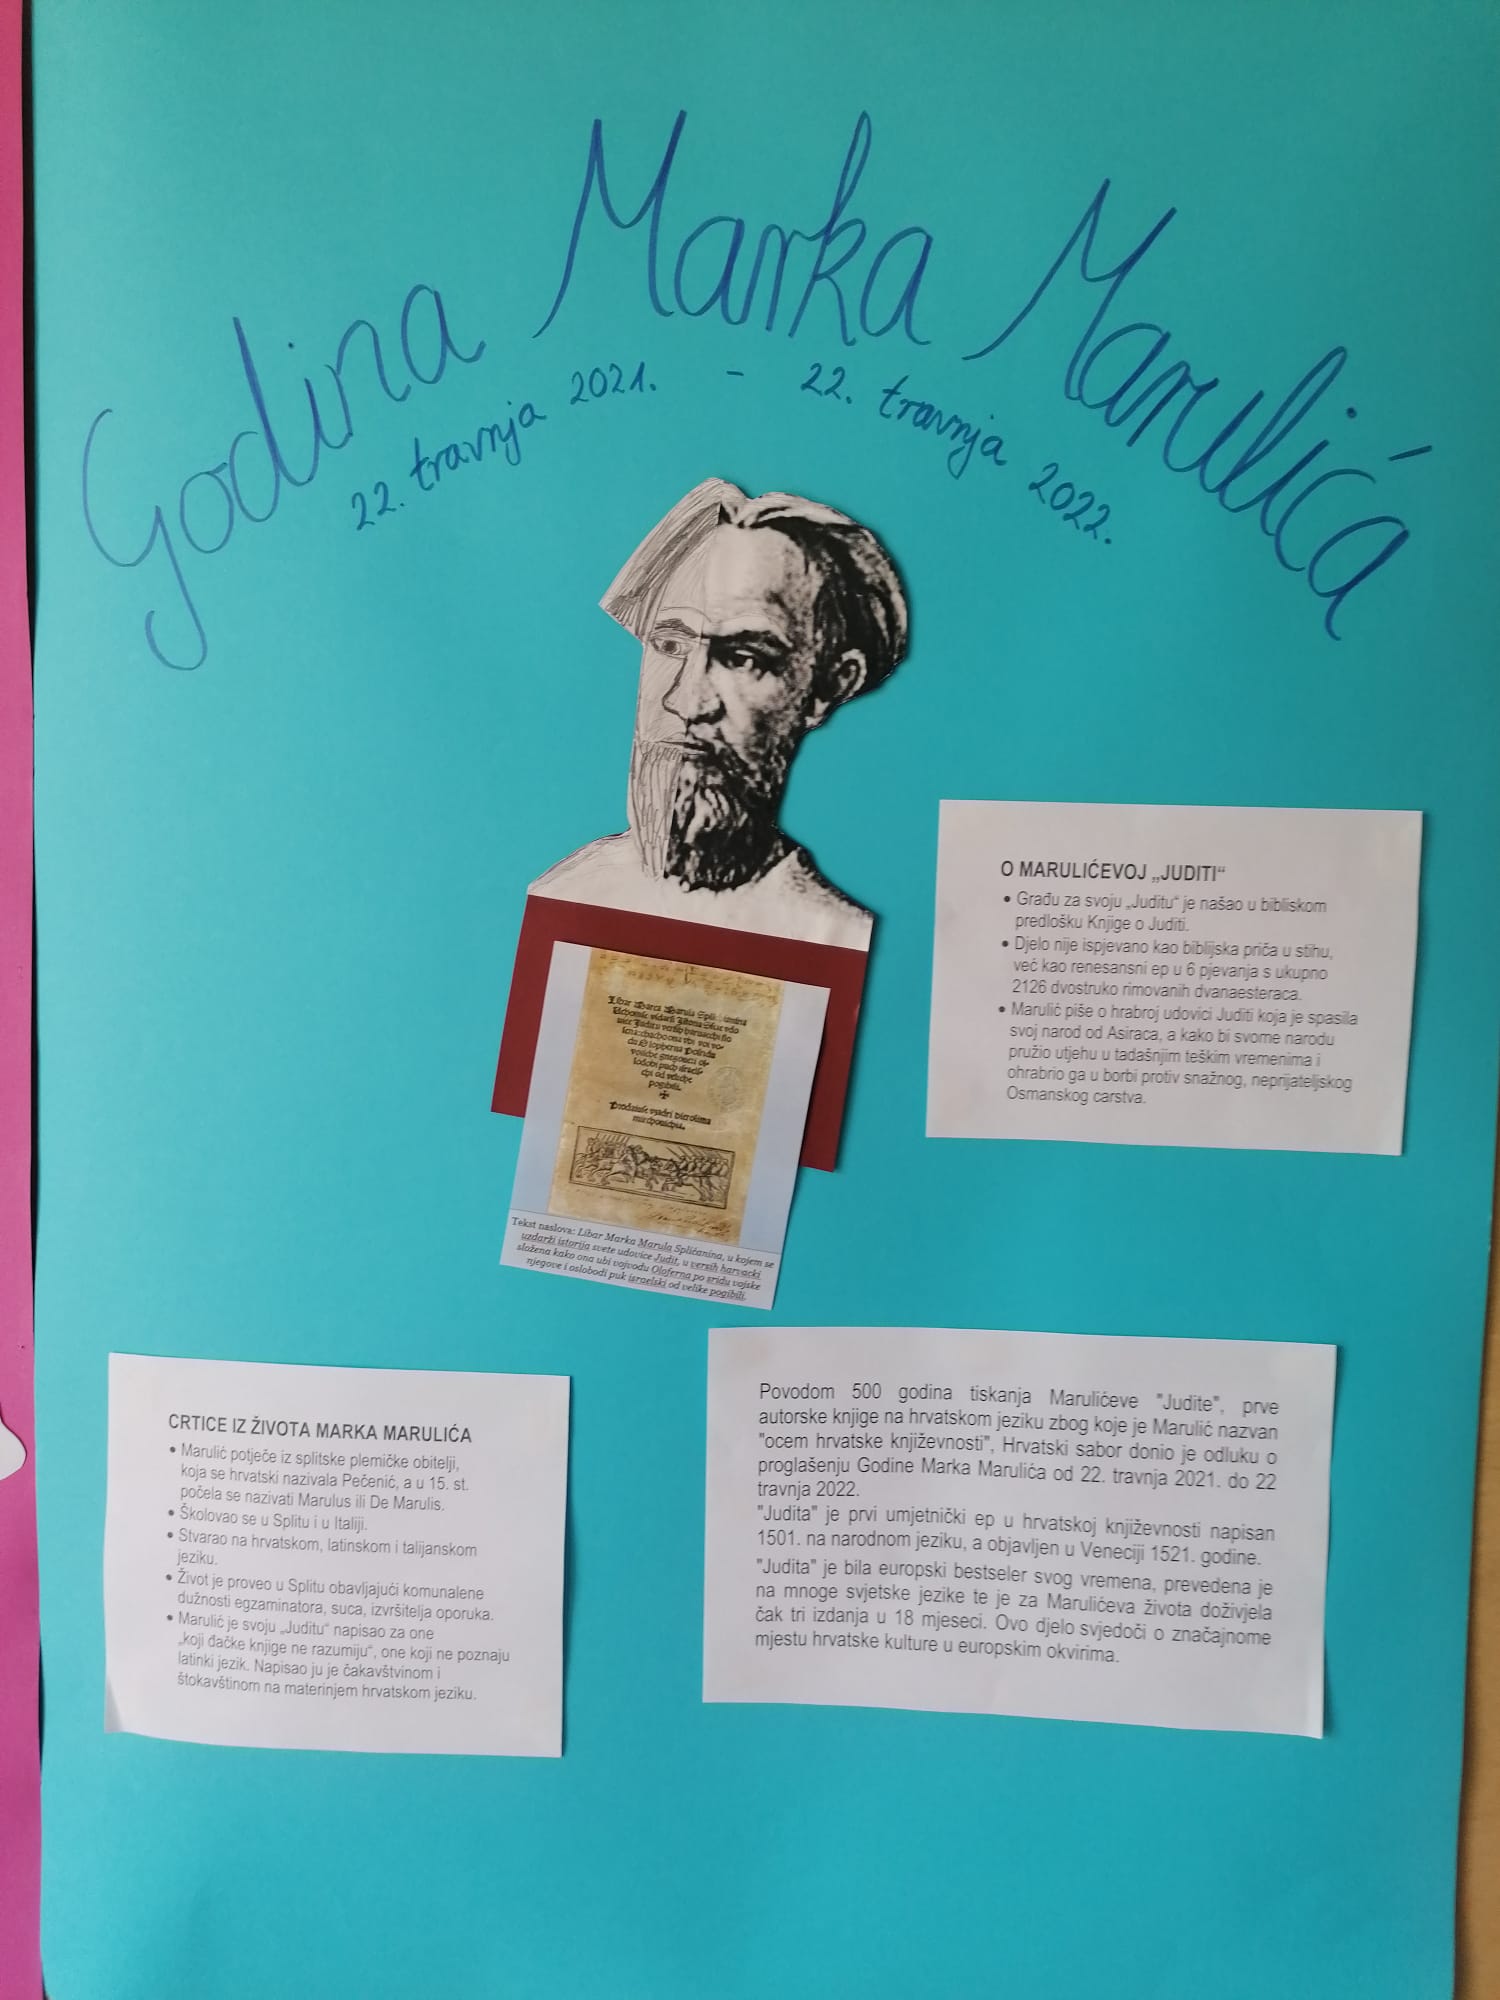 Godina Marka Marulića
22. travnja 2021. - 22. travnja 2022.
O MARULIĆEVOJ „JUDITI“
• Građu za svoju „Juditu“ je našao u bibliskom
predlošku Knjige o Juditi.
• Djelo nije ispjevano kao biblijska priča u stihu,
već kao renesansni ep u 6 pjevanja s ukupno
2126 dvostruko rimovanih dvanaesteraca.
• Marulić piše o hrabroj udovici Juditi koja je spasila
svoj narod od Asiraca, a kako bi svome narodu
pružio utjehu u tadašnjim teškim vremenima i
ohrabrio ga u borbi protiv snažnog, neprijateljskog
Osmanskog carstva.
Libar Marca Marula Splichianina
Tekst naslova: Libar Marka Marula Splićanina, u kojem se
uzdarži istorija svete udovice Judit, u versih harvacki
složena kako ona ubi vojvodu Oloferna po sridu vojske
njegove i oslobodi puk israelski od velike pogibili.
CRTICE IZ ŽIVOTA MARKA MARULIĆA
• Marulić potječe iz splitske plemičke obitelji,
koja se hrvatski nazivala Pečenić, a u 15. st.
počela se nazivati Marulus ili De Marulis.
• Školovao se u Splitu i u Italiji.
• Stvarao na hrvatskom, latinskom i talijanskom
jeziku.
• Život je proveo u Splitu obavljajući komunalene
dužnosti egzaminatora, suca, izvršitelja oporuka.
• Marulić je svoju „Juditu“ napisao za one
„koji dačke knjige ne razumiju“, one koji ne poznaju
latinki jezik. Napisao ju je čakavštvinom i
štokavštinom na materinjem hrvatskom jeziku.
Povodom 500 godina tiskanja Marulićeve "Judite", prve
autorske knjige na hrvatskom jeziku zbog koje je Marulić nazvan
"ocem hrvatske književnosti", Hrvatski sabor donio je odluku o
proglašenju Godine Marka Marulića od 22. travnja 2021. do 22
travnja 2022.
"Judita" je prvi umjetnički ep u hrvatskoj književnosti napisan
1501. na narodnom jeziku, a objavljen u Veneciji 1521. godine.
"Judita" je bila europski bestseler svog vremena, prevedena je
na mnoge svjetske jezike te je za Marulićeva života doživjela
čak tri izdanja u 18 mjeseci. Ovo djelo svjedoči o značajnome
mjestu hrvatske kulture u europskim okvirima.